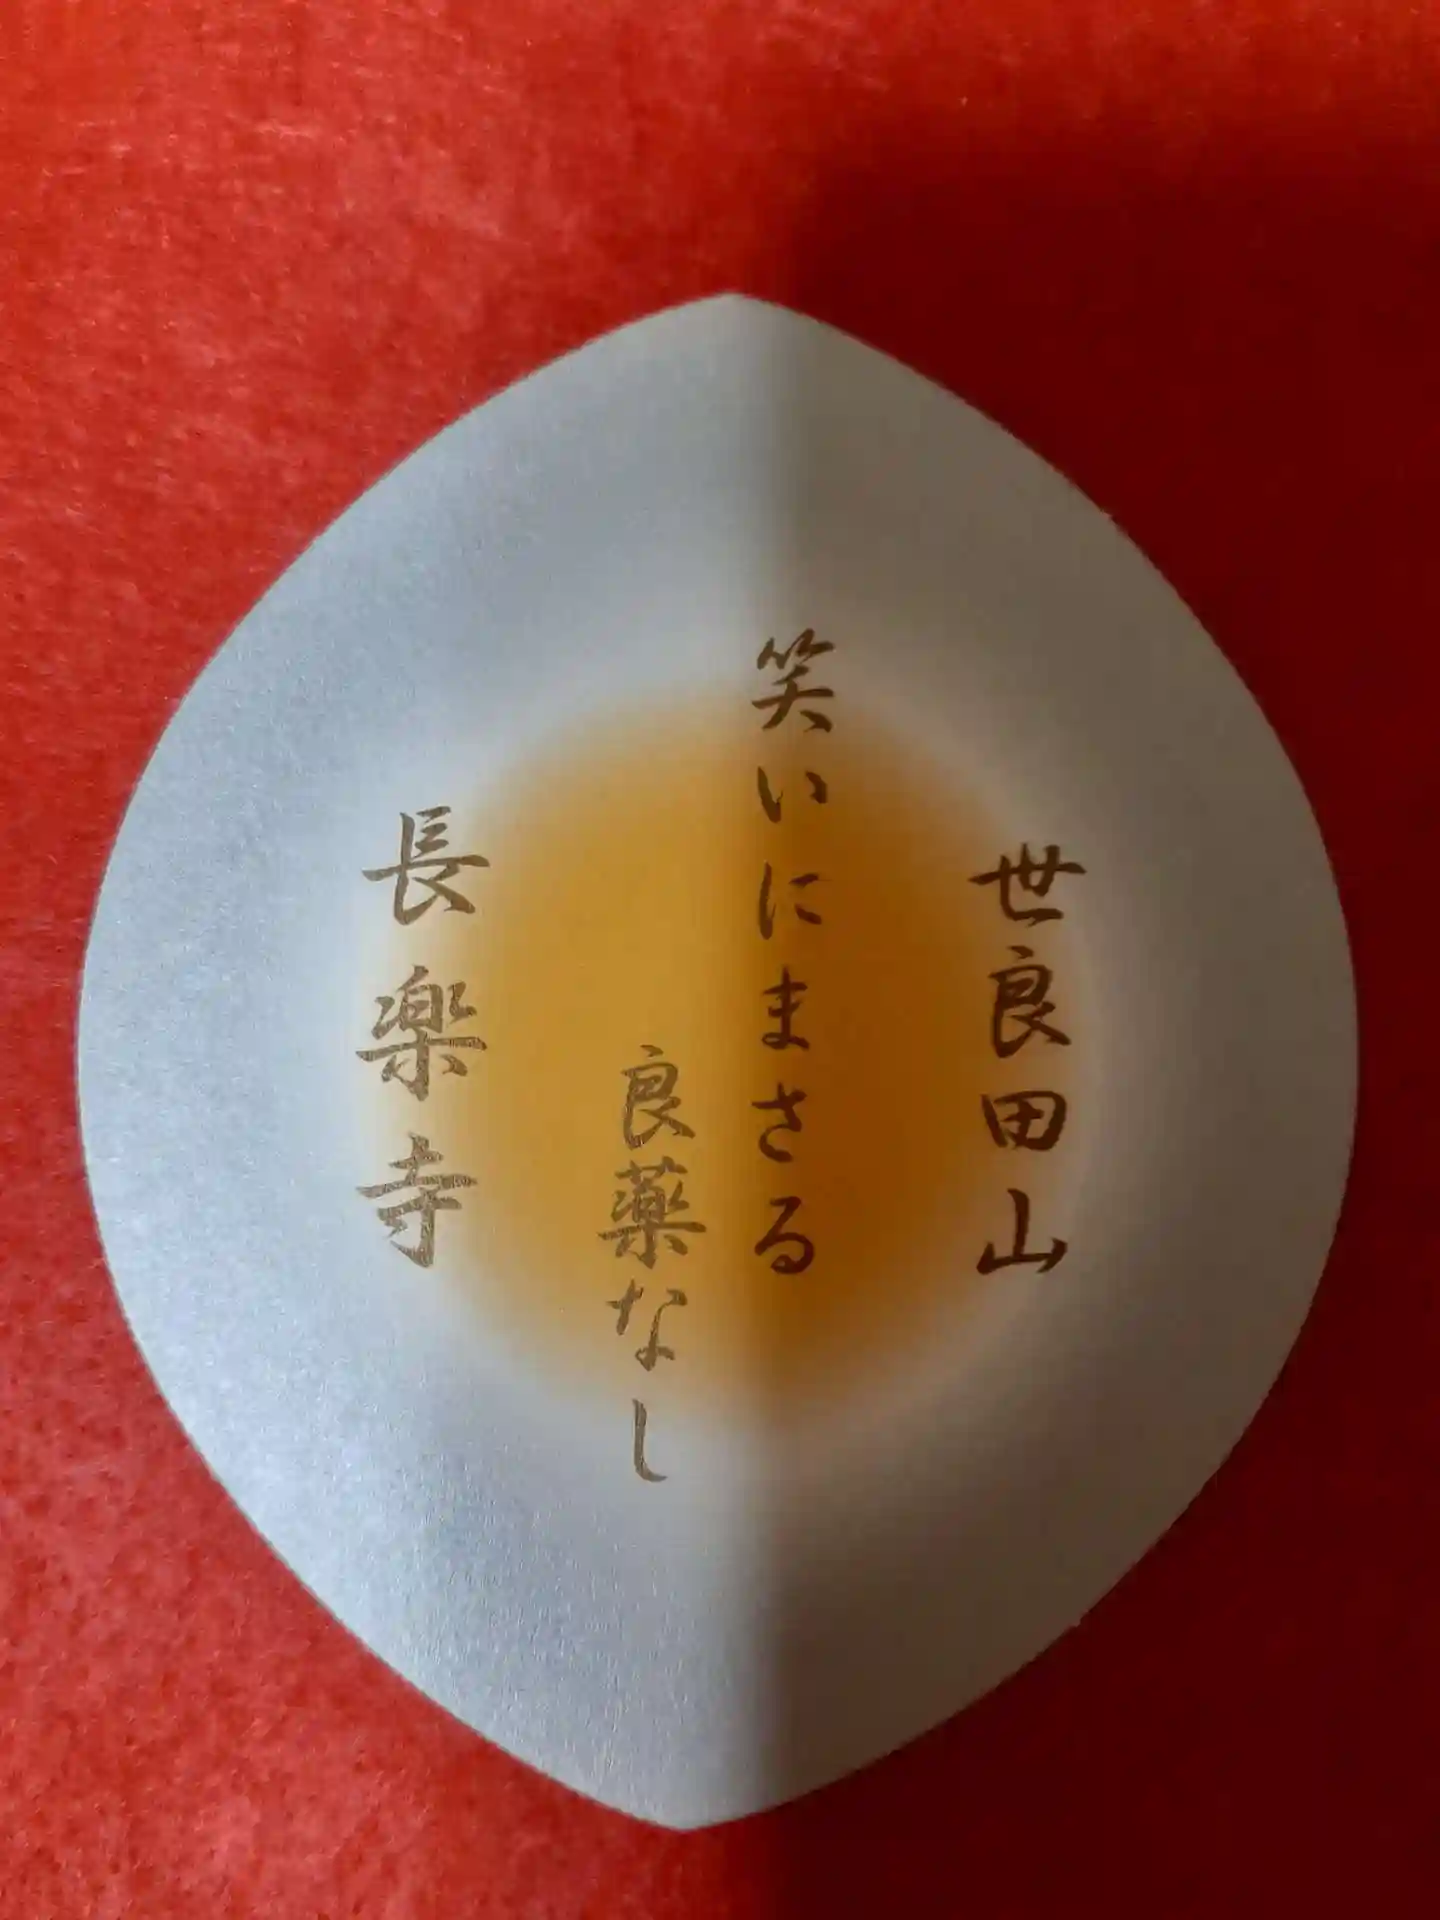 世良田山
笑いにまさる
良薬なし
長楽寺